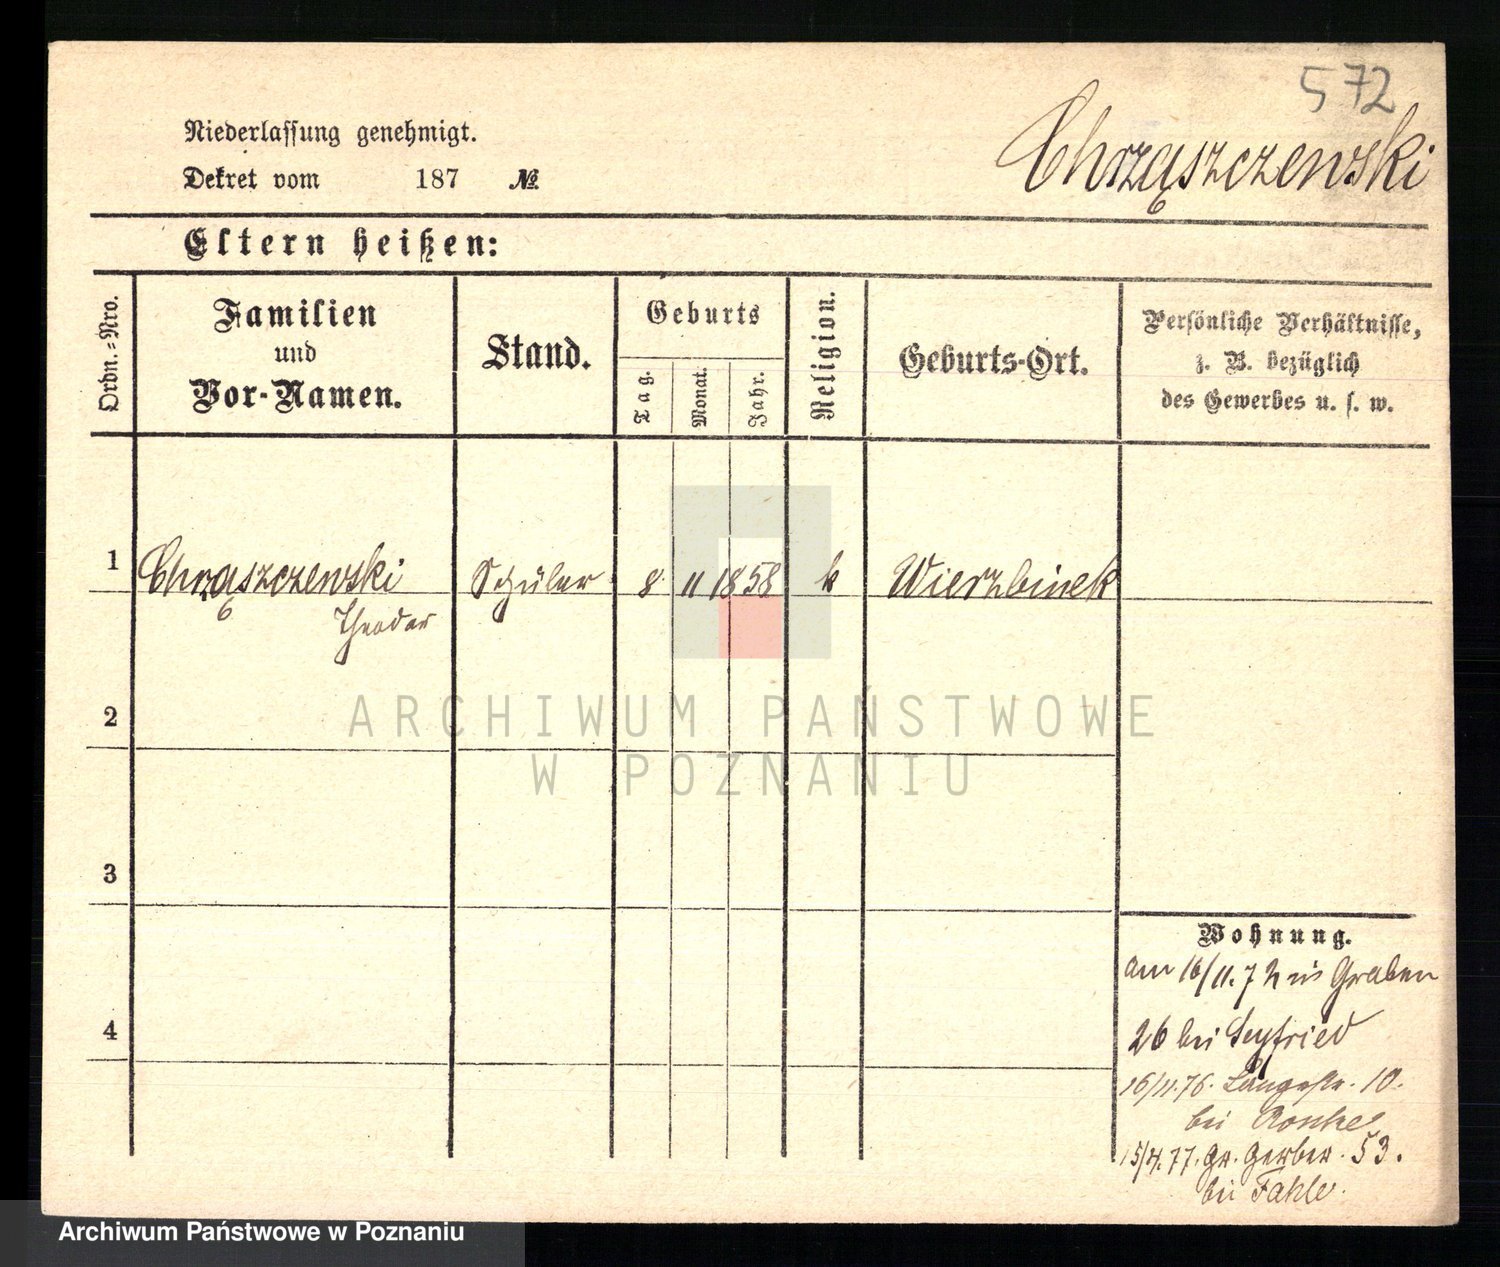 572
Chrząszczewski
Niederlassung genehmigt.
Dekret vom 187 №
Eltern heißen:
Ordn.-Nro.
Familien
und
Vor-Namen.
Stand.
Geburts
Tag.
Monat.
Jahr.
Religion.
Geburts-Ort.
Persönliche Verhältnisse,
z. B. bezüglich
des Gewerbes u. s. w.
1 Chrząszczewski Schüler 8. 11 1858 k Wierzbinek
Theodor
2
3
4
ARCHIWUM PAŃSTWOWE
W POZNANIU
Wohnung.
am 16/11. 7 Graben
26 bei Seyfried
16/11.76. Langestr. 10.
bei
15/4.77. Gr. Gerber. 53.
bei Fahle.
Archiwum Państwowe w Poznaniu